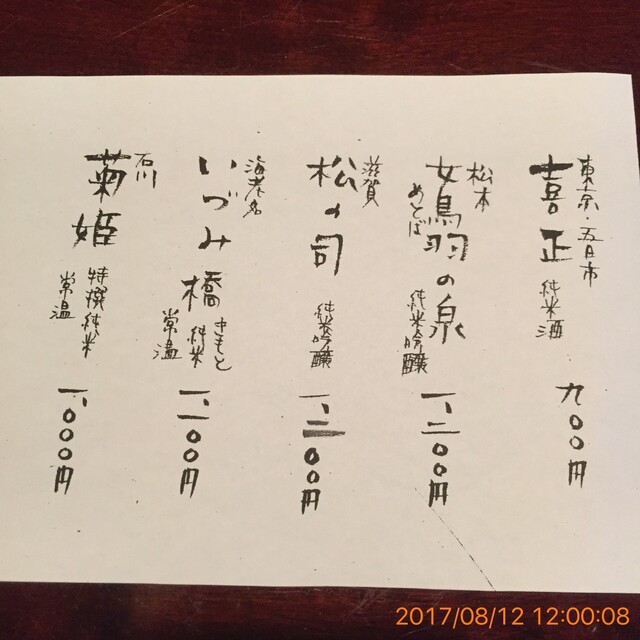 東京 五日市
喜正
純米酒
九〇〇円
松本
女鳥羽の泉
めとば
純米吟醸
一、二〇〇円
滋賀
松の司
純米吟醸
一、二〇〇円
海老名
いづみ橋
きもと
純米
常温
一、一〇〇円
石川
菊姫
特撰純米
常温
一、〇〇〇円
2017/08/12 12:00:08